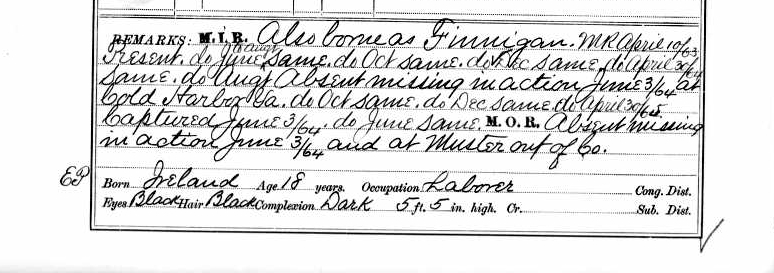 REMARKS: M.I.R. Also borne as Finnigan. MR April 10/63
Present. do June & Augt same. do Oct same. do Dec same. do April 30/64
same. do Augt Absent missing in action June 3/64 at
Cold Harbor Va. do Oct same. do Dec same. do April 30/65.
Captured June 3/64. do June same. M.O.R. Absent missing
in action June 3/64 and at Muster out of Co.
EP
Born Ireland Age 18 years. Occupation Laborer Cong. Dist.
Eyes Black Hair Black Complexion Dark 5 ft. 5 in. high. Cr. Sub. Dist.